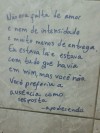 Não era falta de amor
e nem de intensidade
e muito menos de entrega.
Eu estava lá e estava
com tudo que havia
em mim, mas você não.
Você preferiu a
ausência como
resposta.